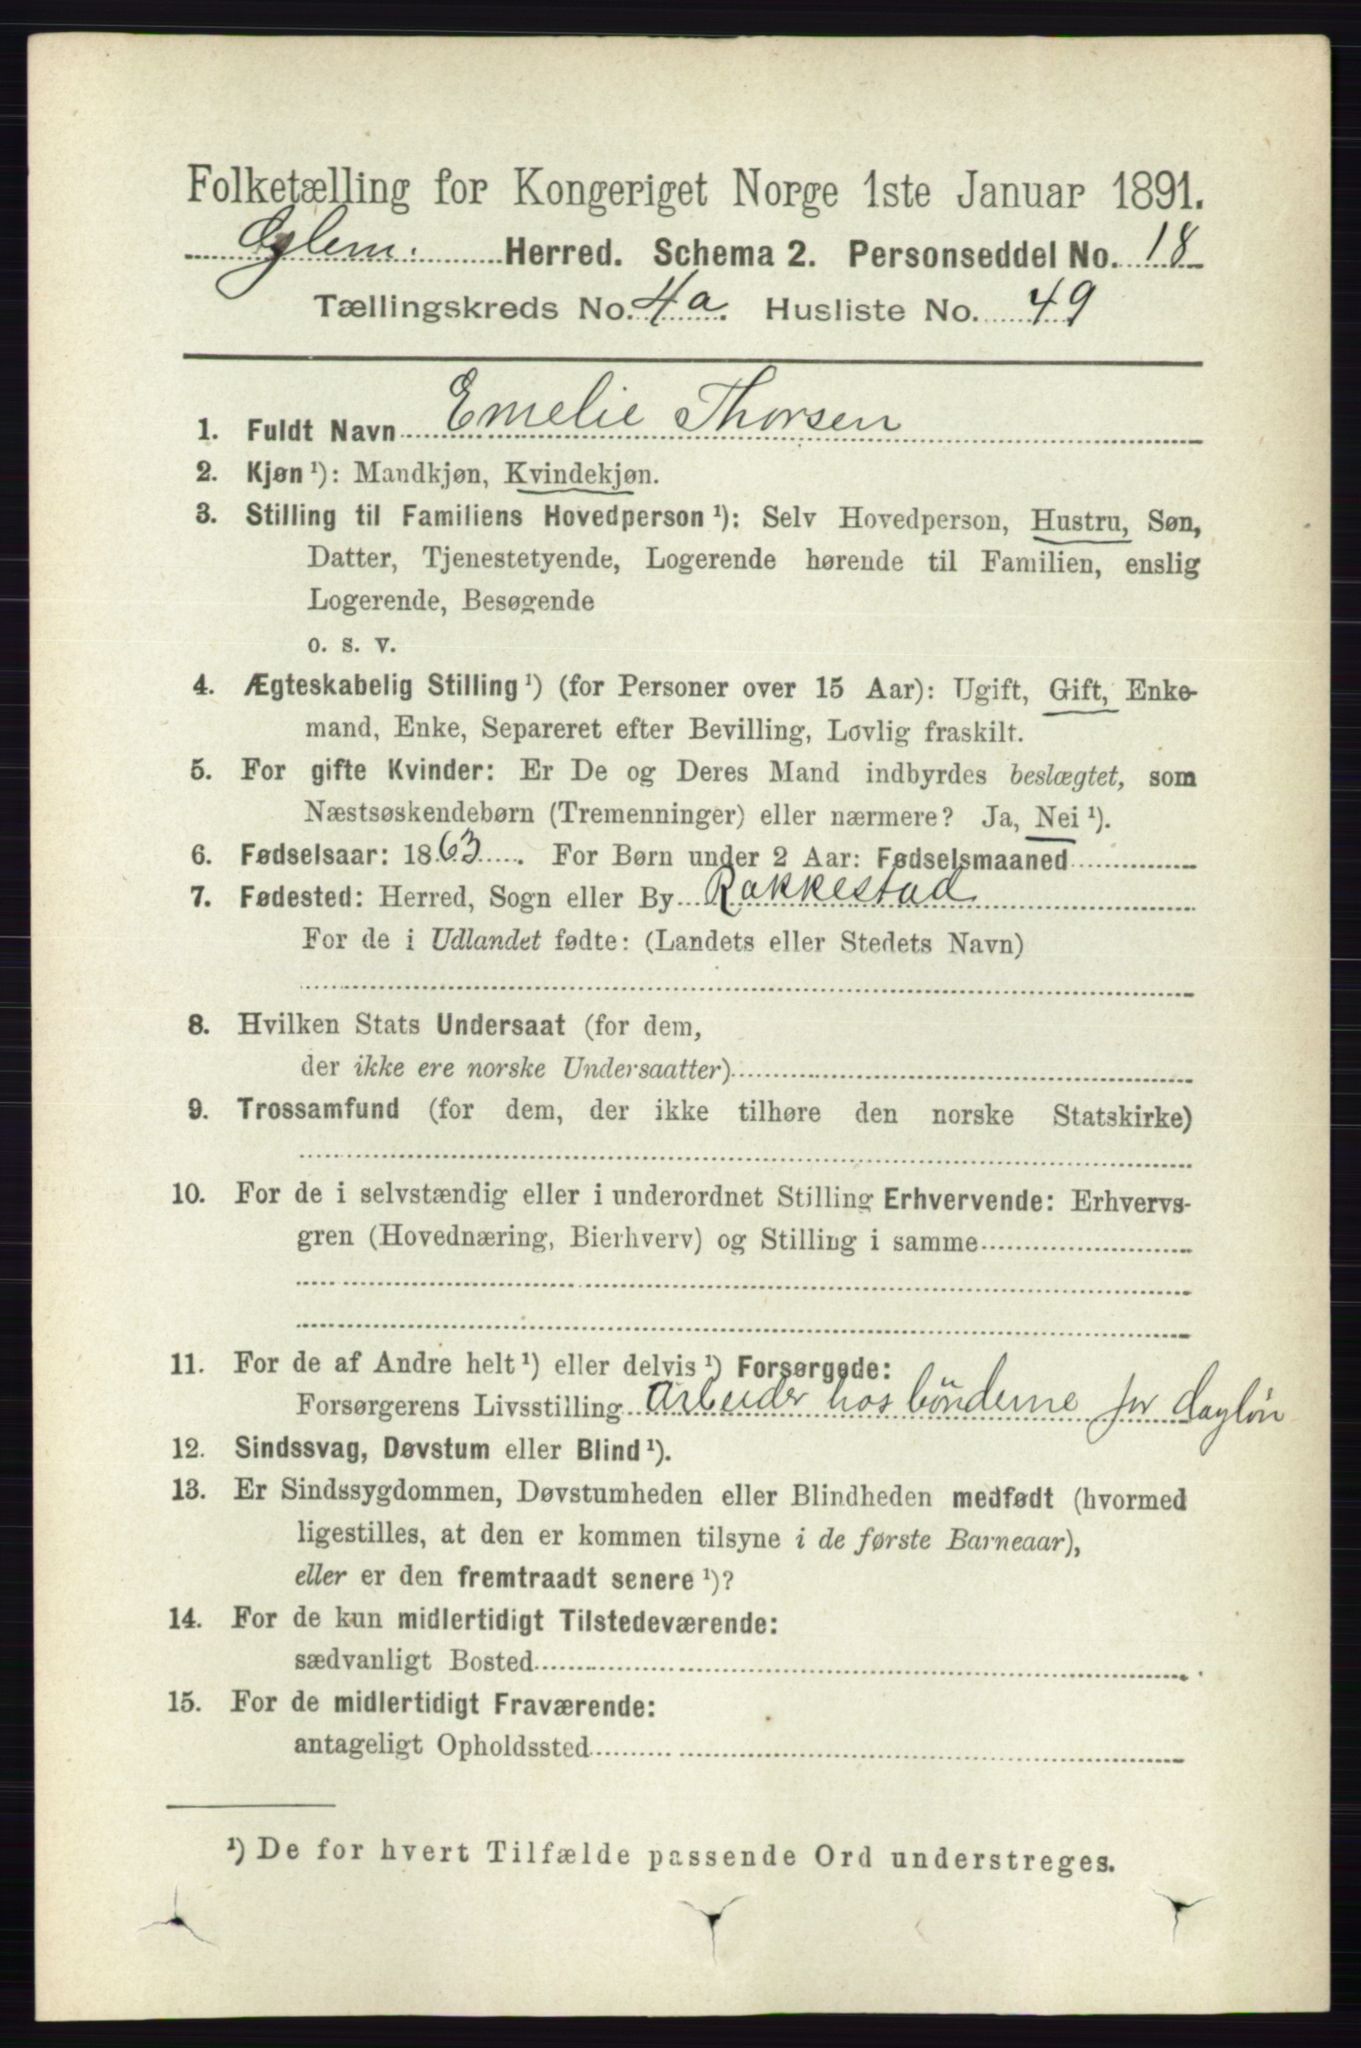 Folketælling for Kongeriget Norge 1ste Januar 1891.
Herred. Schema 2. Personseddel No. 18
Tællingskreds No. 4a. Husliste No. 49
1. Fuldt Navn Emelie Thorsen
2. Kjøn ¹): Mandkjøn, Kvindekjøn.
3. Stilling til Familiens Hovedperson ¹): Selv Hovedperson, Hustru, Søn,
Datter, Tjenestetyende, Logerende hørende til Familien, enslig
Logerende, Besøgende
o. s. v.
4. Ægteskabelig Stilling ¹) (for Personer over 15 Aar): Ugift, Gift, Enke-
mand, Enke, Separeret efter Bevilling, Lovlig fraskilt.
5. For gifte Kvinder: Er De og Deres Mand indbyrdes beslægtet, som
Næstsøskendebørn (Tremenninger) eller nærmere? Ja, Nei ¹).
6. Fødselsaar: 1863. For Børn under 2 Aar: Fødselsmaaned
7. Fødested: Herred, Sogn eller By Rakkestad
For de i Udlandet fødte: (Landets eller Stedets Navn)
8. Hvilken Stats Undersaat (for dem,
der ikke ere norske Undersaatter)
9. Trossamfund (for dem, der ikke tilhøre den norske Statskirke)
10. For de i selvstændig eller i underordnet Stilling Erhvervende: Erhvervs-
gren (Hovednæring, Bierhverv) og Stilling i samme
11. For de af Andre helt ¹) eller delvis ¹) Forsørgede:
Forsørgerens Livsstilling arbeider hos bönderne for daglön
12. Sindssvag, Døvstum eller Blind ¹).
13. Er Sindssygdommen, Døvstumheden eller Blindheden medfødt (hvormed
ligestilles, at den er kommen tilsyne i de første Barneaar),
eller er den fremtraadt senere ¹)?
14. For de kun midlertidigt Tilstedeværende:
sædvanligt Bosted
15. For de midlertidigt Fraværende:
antageligt Opholdssted
¹) De for hvert Tilfælde passende Ord understreges.